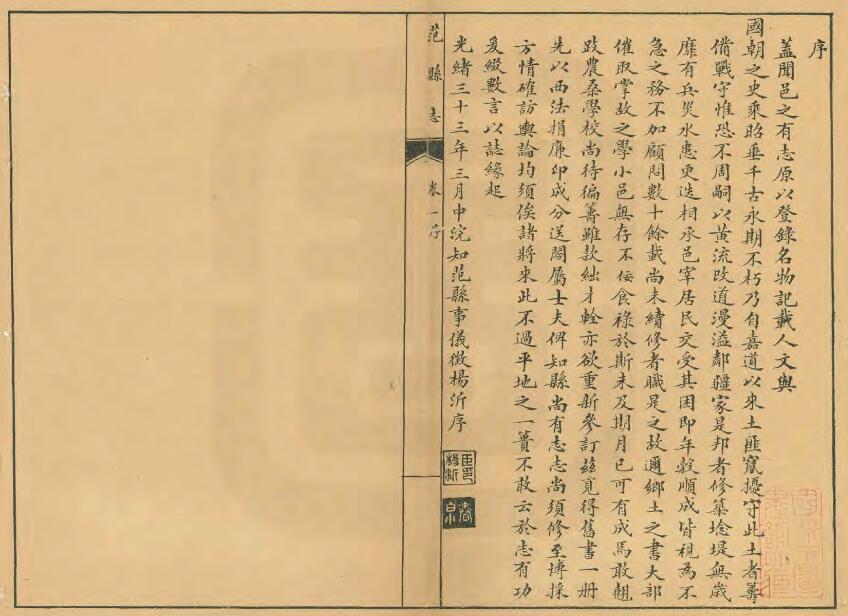 序
蓋聞邑之有志原以登錄名物記載人文與
國朝之史乘昭垂千古永期不朽乃自嘉道以來土匪竄擾守此土者籌
備戰守惟恐不周嗣以黃流改道漫溢鄰疆家是邦者修築埝堤無歲
靡有兵災水患更迭相承邑宰居民交受其困即年穀順成皆視為不
急之務不加顧問數十餘載尚未續修者職是之故邇鄉土之書大部
催取掌故之學小邑無存不佞食祿於斯未及期月已可有成焉敢翹
跂農桑學校尚待徧籌雖款絀才輇亦欲重新參訂茲覓得舊書一册
先以西法捐廉印成分送閤屬士夫俾知縣尚有志志尚須修至博採
方情確訪輿論均須俟諸將來此不過平地之一簣不敢云於志有功
爰綴數言以誌緣起
光緒三十三年三月中浣知范縣事儀徵楊沂序
范縣志
卷一序